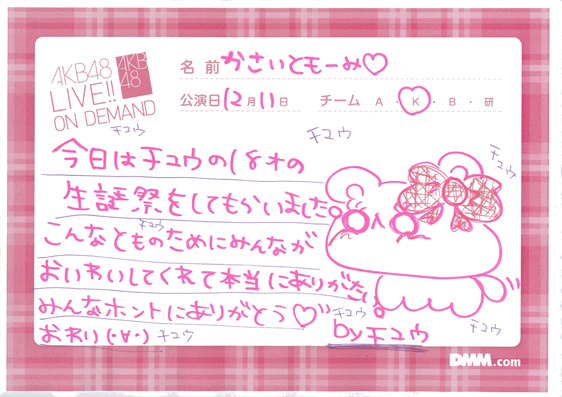 AKB48
LIVE!!
ON DEMAND
AKB
48
名前 かさいともーみ♡
公演日 12月11日 チーム A・K・B・研
チュウ
チュウ
チュウ
今日はチュウの18才の
生誕祭をしてもらいました。
チュウ
こんなとものためにみんなが
おいわいしてくれて本当にありがたい。
みんなホントにありがとう♡
チュウ
おわり(・∀・) チュウ
byチュウ
チュウ
DMM.com